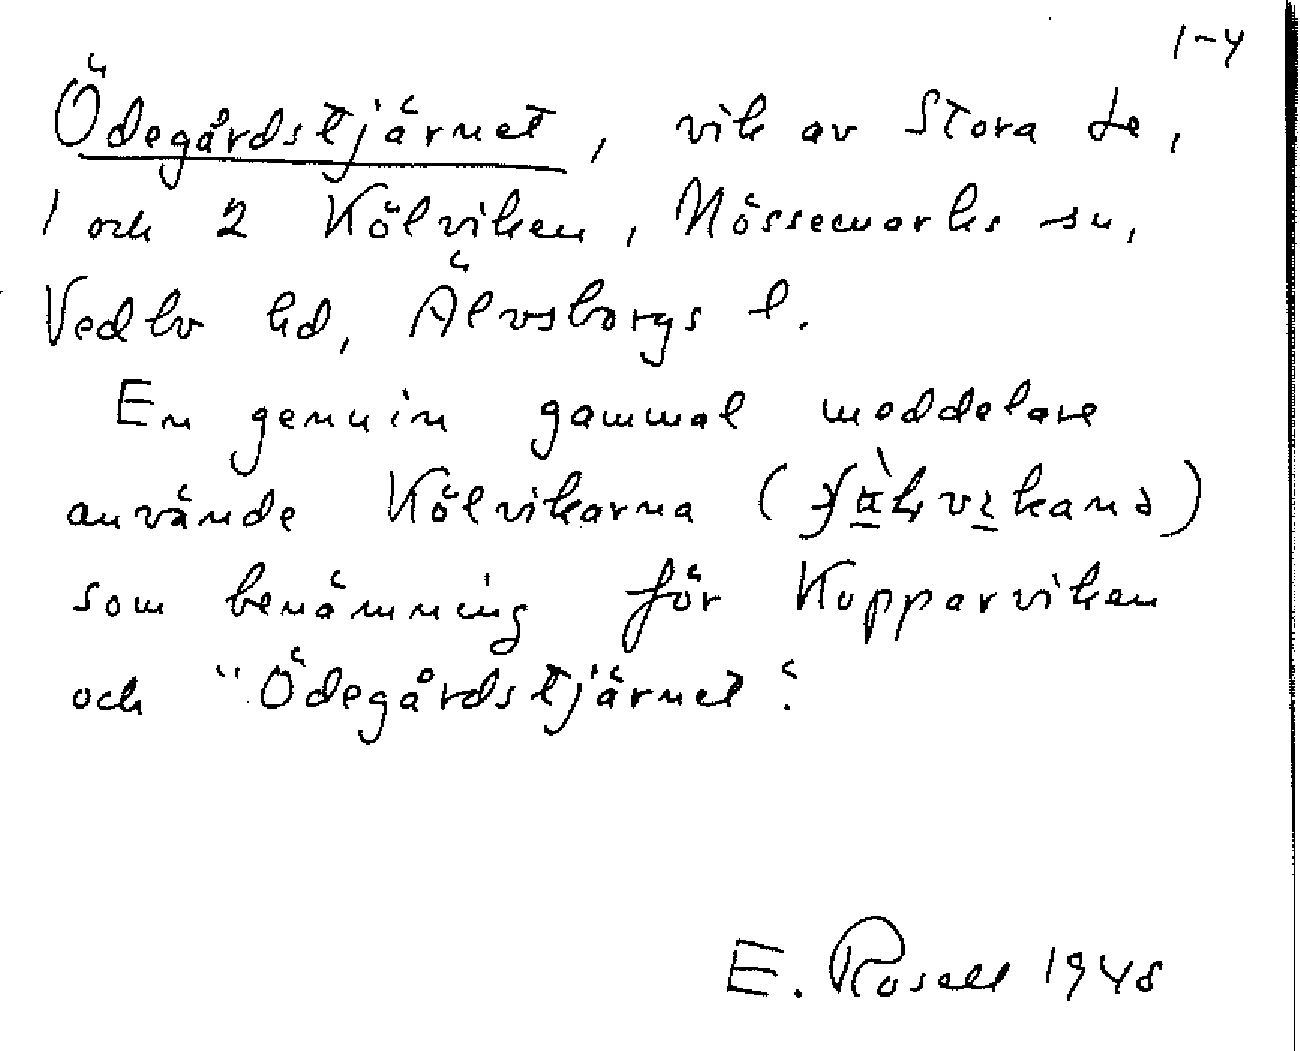 1-4
Ödegårdstjärnet, vik av Stora Le,
1 och 2 Kölviken, Nössemarks sn,
Vedbo hd, Älvsborgs l.
En genuin gammal meddelare
använde Kölvikarna
som benämning för Kopparviken
och "Ödegårdstjärnet".
E. Rosell 1948